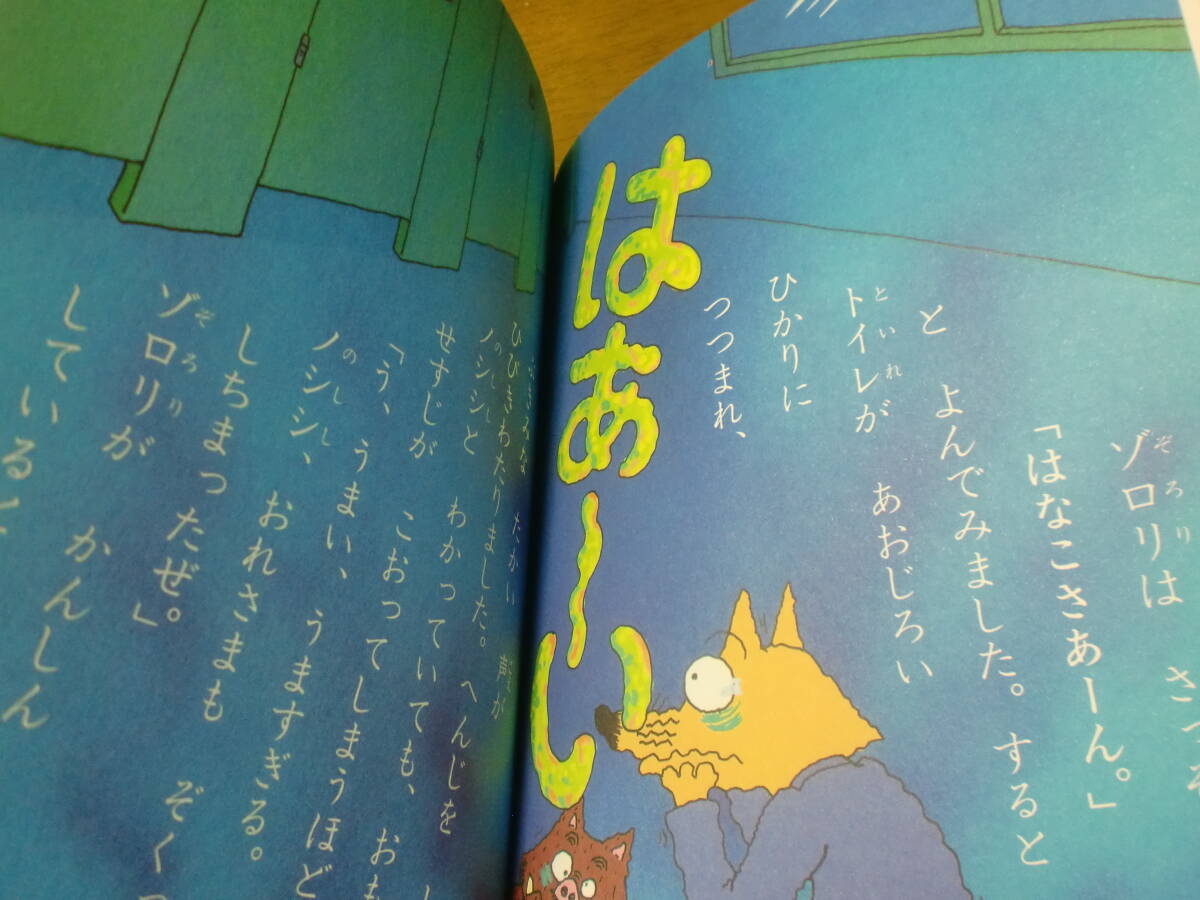 ゾロリは さっそ
「はなこさあーん。」
と よんでみました。すると
トイレが あおじろい
ひかりに
つつまれ、
はあーい
ひびきわたりました。 声が
ノシシと わかっていても、 おも
せすじが こおってしまうほど
「う、 うまい、 うますぎる。
ノシシ、 おれさまも ぞくっ
しちまったぜ。」
ゾロリが かんしん
している